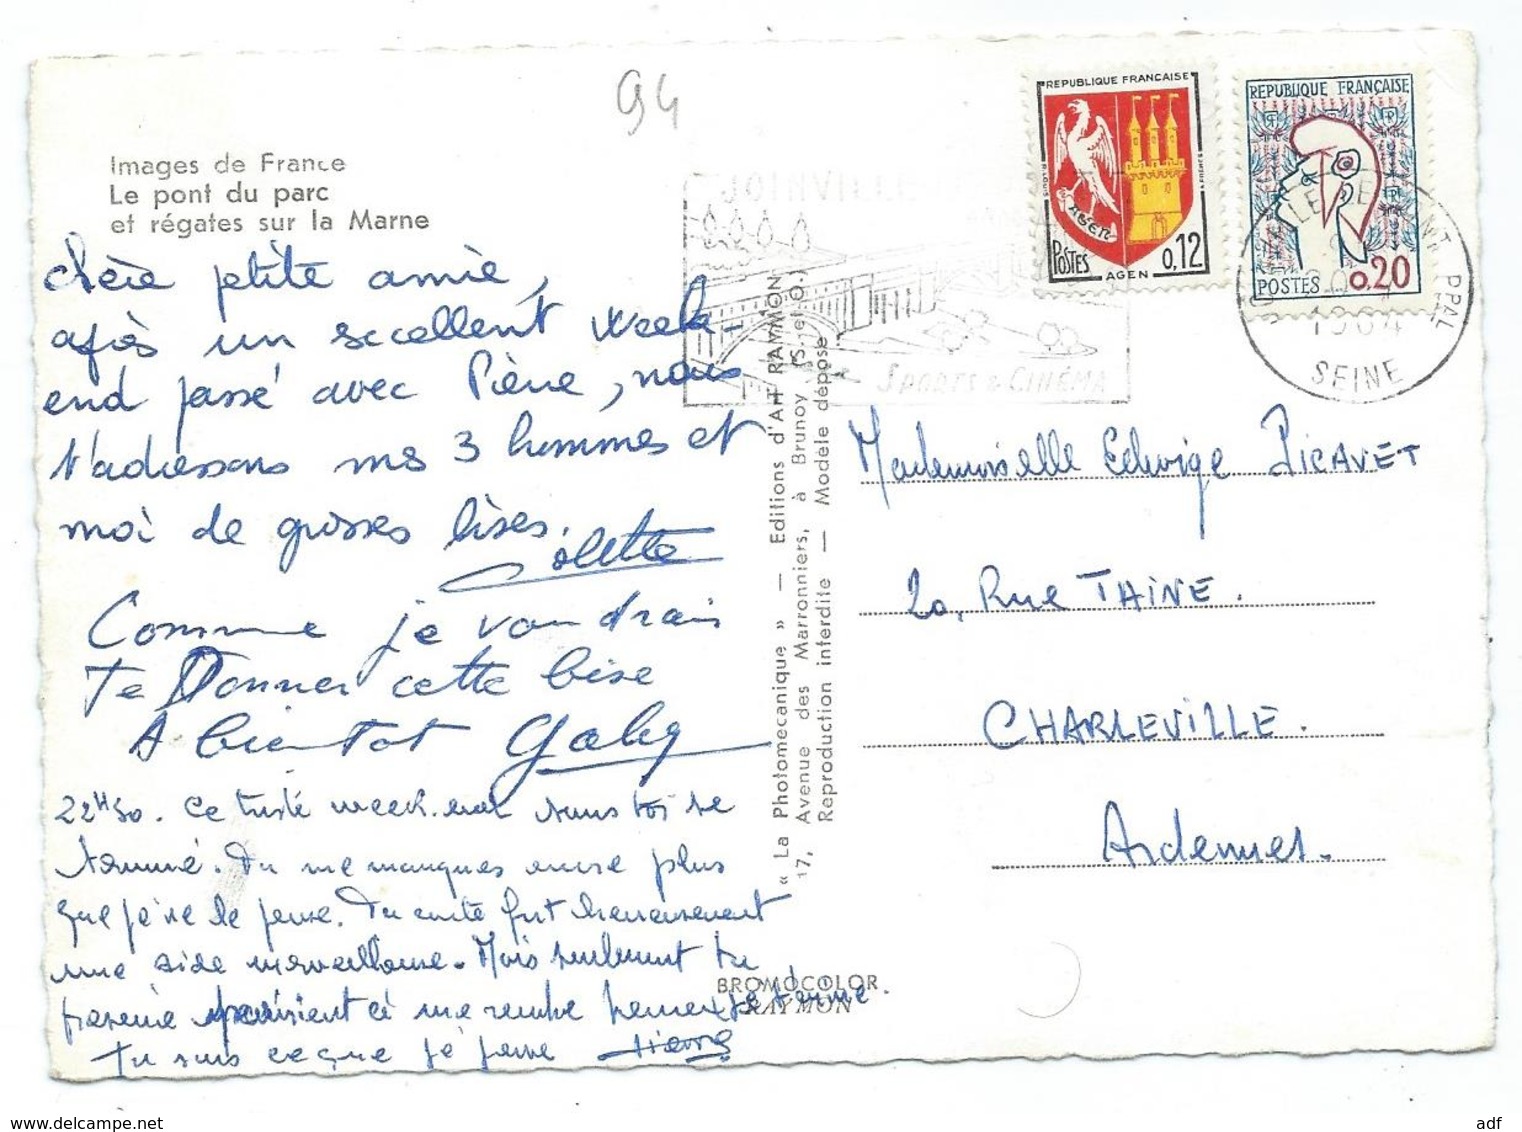 94
Images de France
Le pont du parc
et régates sur la Marne
REPUBLIQUE FRANÇAISE
AGEN
POSTES
AGEN
0,12
REPUBLIQUE FRANÇAISE
POSTES
0,20
JOINVILLE
SPORTS & CINÉMA
JOINVILLE LE PONT PPAL
1964
SEINE
chère petite amie,
après un excellent week-
end passé avec Pierre, nous
t'adressons mes 3 hommes et
moi de grosses bises.
Colette
Comme je voudrais
Te Donner cette bise
A bientot Gaby
22H30. Ce triste week-end sans toi se
termine. Tu me manques encore plus
que je ne le pense.
une aide merveilleuse. Mais seulement tu
me rendre
Tu sais ce que je pense Pierre
« La Photomecanique » — Editions d'Art RAYMON
17, Avenue des Marronniers, à Brunoy (S.-et-O.)
Reproduction interdite — Modèle déposé
BROMOCOLOR
RAYMON
Mademoiselle Edwige PICAVET
20, Rue TAINE.
CHARLEVILLE.
Ardennes.
delcampe.net
adf